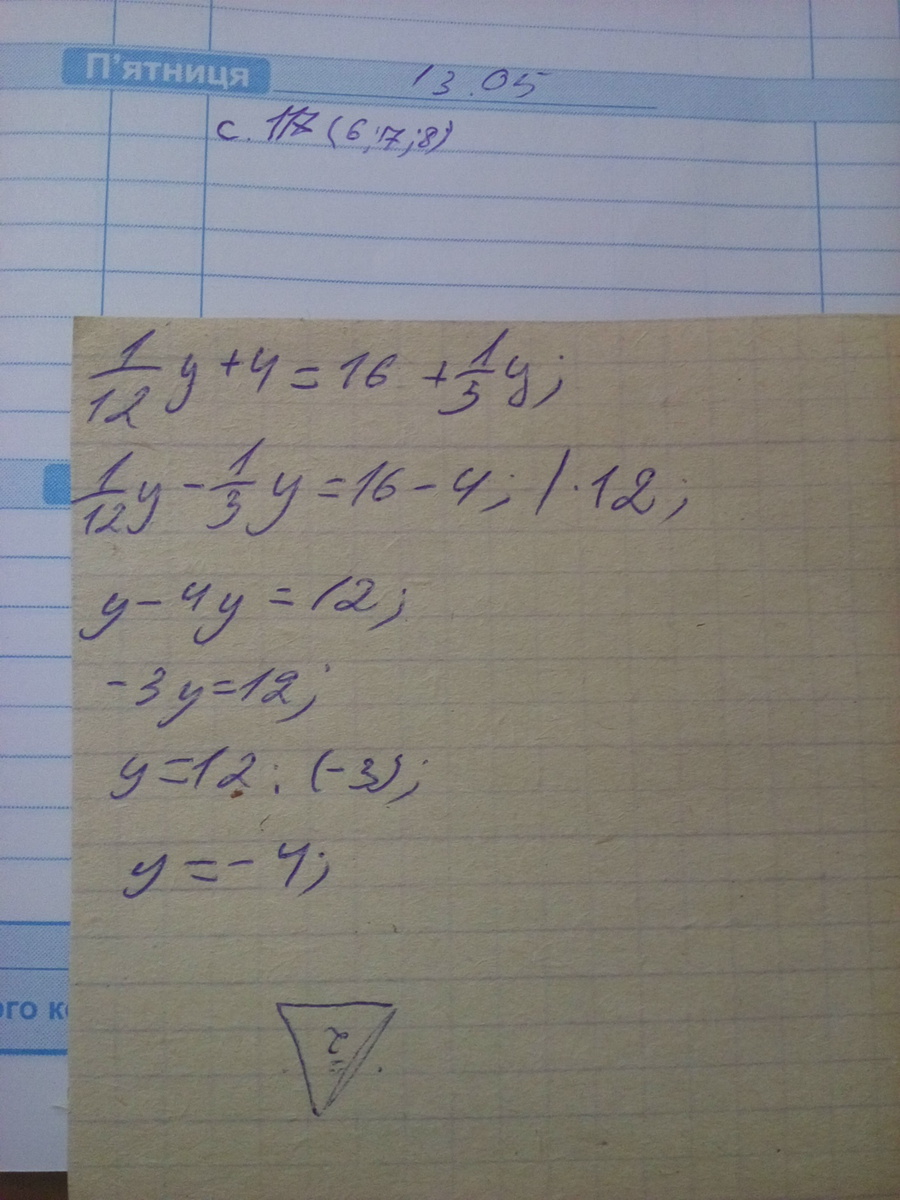 П'ятниця 13.05
с. 117 (6;7;8)
1/12 y + 4 = 16 + 1/3 y;
1/12 y - 1/3 y = 16 - 4; / · 12;
y - 4y = 12;
-3y = 12;
y = 12 : (-3);
y = -4;
ого к